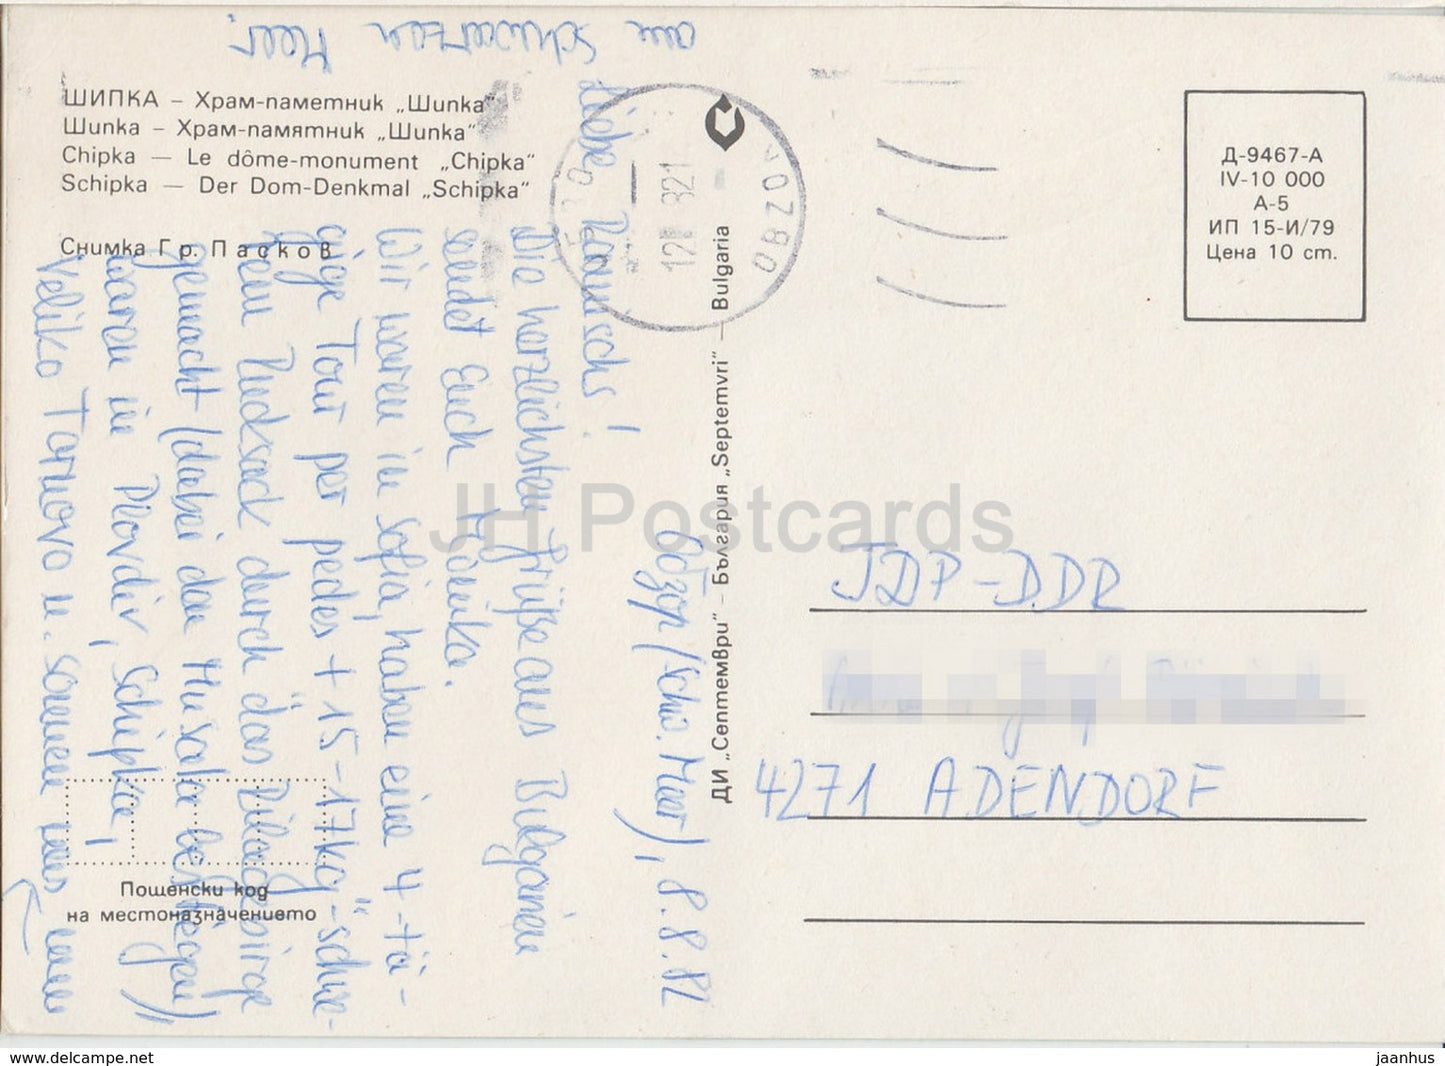 ШИПКА – Храм-паметник „Шипка“
Шипка – Храм-памятник „Шипка“
Chipka — Le dôme-monument „Chipka“
Schipka — Der Dom-Denkmal „Schipka“
Снимка Гр. Пасков
Обзор/(Schw. Meer), 8.8.82
Liebe
Die herzlichsten Grüße aus Bulgarien
sendet Euch Monika.
Wir waren in Sofia, haben eine 4-tä-
gige Tour per pedes + 15-17kg-"schwe-
rem Rucksack durch das Rilagebirge
gemacht (dabei den Musala bestiegen)
waren in Plovdiv, Schipka,
Veliko Tarnovo u. sonnen uns nun
am Schwarzen Meer.
Пощенски код
на местоназначението
ДИ „Септември“ – България „Septemvri“ — Bulgaria
OBZOR
12 821
Д-9467-А
IV-10 000
А-5
ИП 15-И/79
Цена 10 ст.
JH Postcards
DDR
4271 ADENDORF
www.delcampe.net
jaanhus